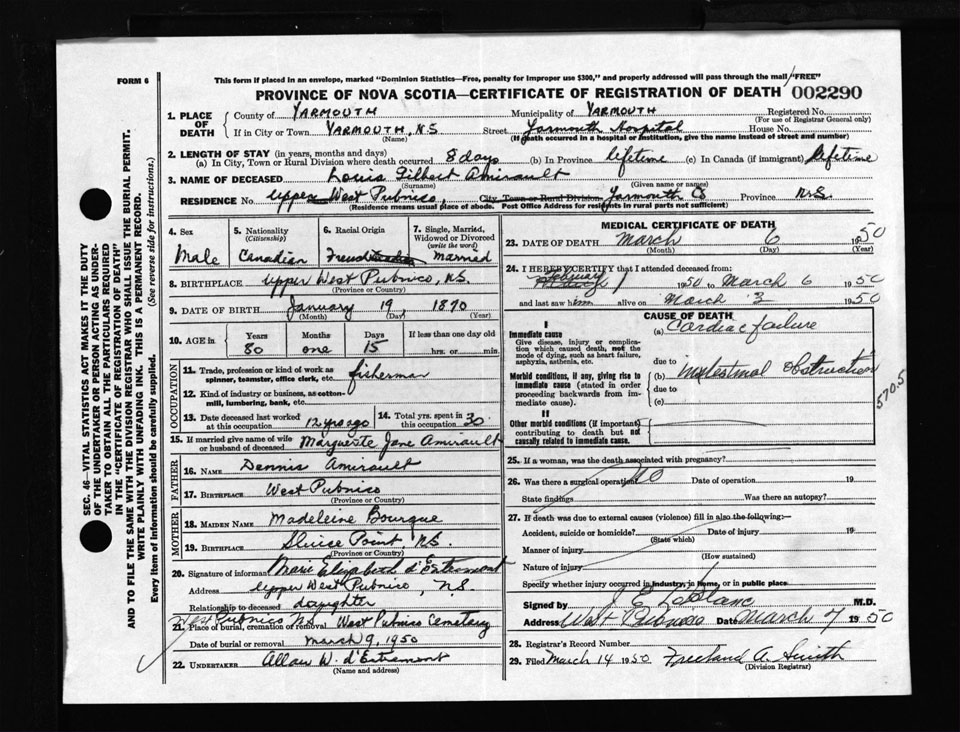 FORM 6
This form if placed in an envelope, marked "Dominion Statistics—Free, penalty for improper use $300," and properly addressed will pass through the mail "FREE"
PROVINCE OF NOVA SCOTIA—CERTIFICATE OF REGISTRATION OF DEATH 002290
SEC. 46—VITAL STATISTICS ACT MAKES IT THE DUTY
OF THE UNDERTAKER OR PERSON ACTING AS UNDER-
TAKER TO OBTAIN ALL THE PARTICULARS REQUIRED
IN THE "CERTIFICATE OF REGISTRATION OF DEATH"
AND TO FILE THE SAME WITH THE DIVISION REGISTRAR WHO SHALL ISSUE THE BURIAL PERMIT.
WRITE PLAINLY WITH UNFADING INK. THIS IS A PERMANENT RECORD.
Every item of information should be carefully supplied. (See reverse side for instructions.)
1. PLACE OF DEATH
County of YARMOUTH Municipality of YARMOUTH Registered No.
(For use of Registrar General only)
If in City or Town YARMOUTH, N.S. Street Yarmouth Hospital House No.
(Name) (If death occurred in a hospital or institution, give the name instead of street and number)
2. LENGTH OF STAY (in years, months and days)
(a) In City, Town or Rural Division where death occurred 8 days (b) In Province lifetime (c) In Canada (if immigrant) Lifetime
3. NAME OF DECEASED Louis Gilbert Amirault
(Surname) (Given name or names)
RESIDENCE No. Upper West Pubnico, City, Town or Rural Division Yarmouth Co Province N.S
(Residence means usual place of abode. Post Office Address for residents in rural parts not sufficient)
4. Sex
Male
5. Nationality
(Citizenship)
Canadian
6. Racial Origin
French
7. Single, Married, Widowed or Divorced
(write the word)
Married
8. BIRTHPLACE Upper West Pubnico, N.S.
(Province or Country)
9. DATE OF BIRTH January 19 1870
(Month) (Day) (Year)
10. AGE in Years Months Days If less than one day old
80 one 15 hrs. or min.
OCCUPATION
11. Trade, profession or kind of work as
spinner, teamster, office clerk, etc. fisherman
12. Kind of industry or business, as cotton-
mill, lumbering, bank, etc.
13. Date deceased last worked
at this occupation 12 yrs ago
14. Total yrs. spent in
this occupation 30
15. If married give name of wife
or husband of deceased Marguerite Jane Amirault
FATHER
16. NAME Dennis Amirault
17. BIRTHPLACE West Pubnico
(Province or Country)
MOTHER
18. MAIDEN NAME Madeleine Bourque
19. BIRTHPLACE Sluice Point, N.S.
(Province or Country)
20. Signature of informant Marie Elizabeth d'Entremont
Address Upper West Pubnico, N.S.
Relationship to deceased daughter
West Pubnico N.S.
21. Place of burial, cremation or removal West Pubnico Cemetery
Date of burial or removal March 9, 1950
22. UNDERTAKER Allan W. d'Entremont
(Name and address)
MEDICAL CERTIFICATE OF DEATH
23. DATE OF DEATH March 6 1950
(Month) (Day) (Year)
24. I HEREBY CERTIFY that I attended deceased from:
February 1 1950 to March 6 1950
and last saw him alive on March 3 1950
CAUSE OF DEATH
I
Immediate cause
Give disease, injury or complica-
tion which caused death, not the
mode of dying, such as heart failure,
asphyxia, asthenia, etc.
(a) Cardiac failure
due to
Morbid conditions, if any, giving rise to
immediate cause (stated in order
proceeding backwards from im-
mediate cause).
(b) Intestinal obstruction
due to
(c)
570.5
II
Other morbid conditions (if important)
contributing to death but not
causally related to immediate cause.
25. If a woman, was the death associated with pregnancy?
26. Was there a surgical operation? No Date of operation 19
State findings Was there an autopsy?
27. If death was due to external causes (violence) fill in also the following:
Accident, suicide or homicide? Date of injury 19
(State which)
Manner of injury
(How sustained)
Nature of injury
Specify whether injury occurred in industry, in home, or in public place
Signed by J E LeBlanc M.D.
Address West Pubnico Date March 7 1950
28. Registrar's Record Number
29. Filed March 14 1950 Freeland A. Smith
(Division Registrar)